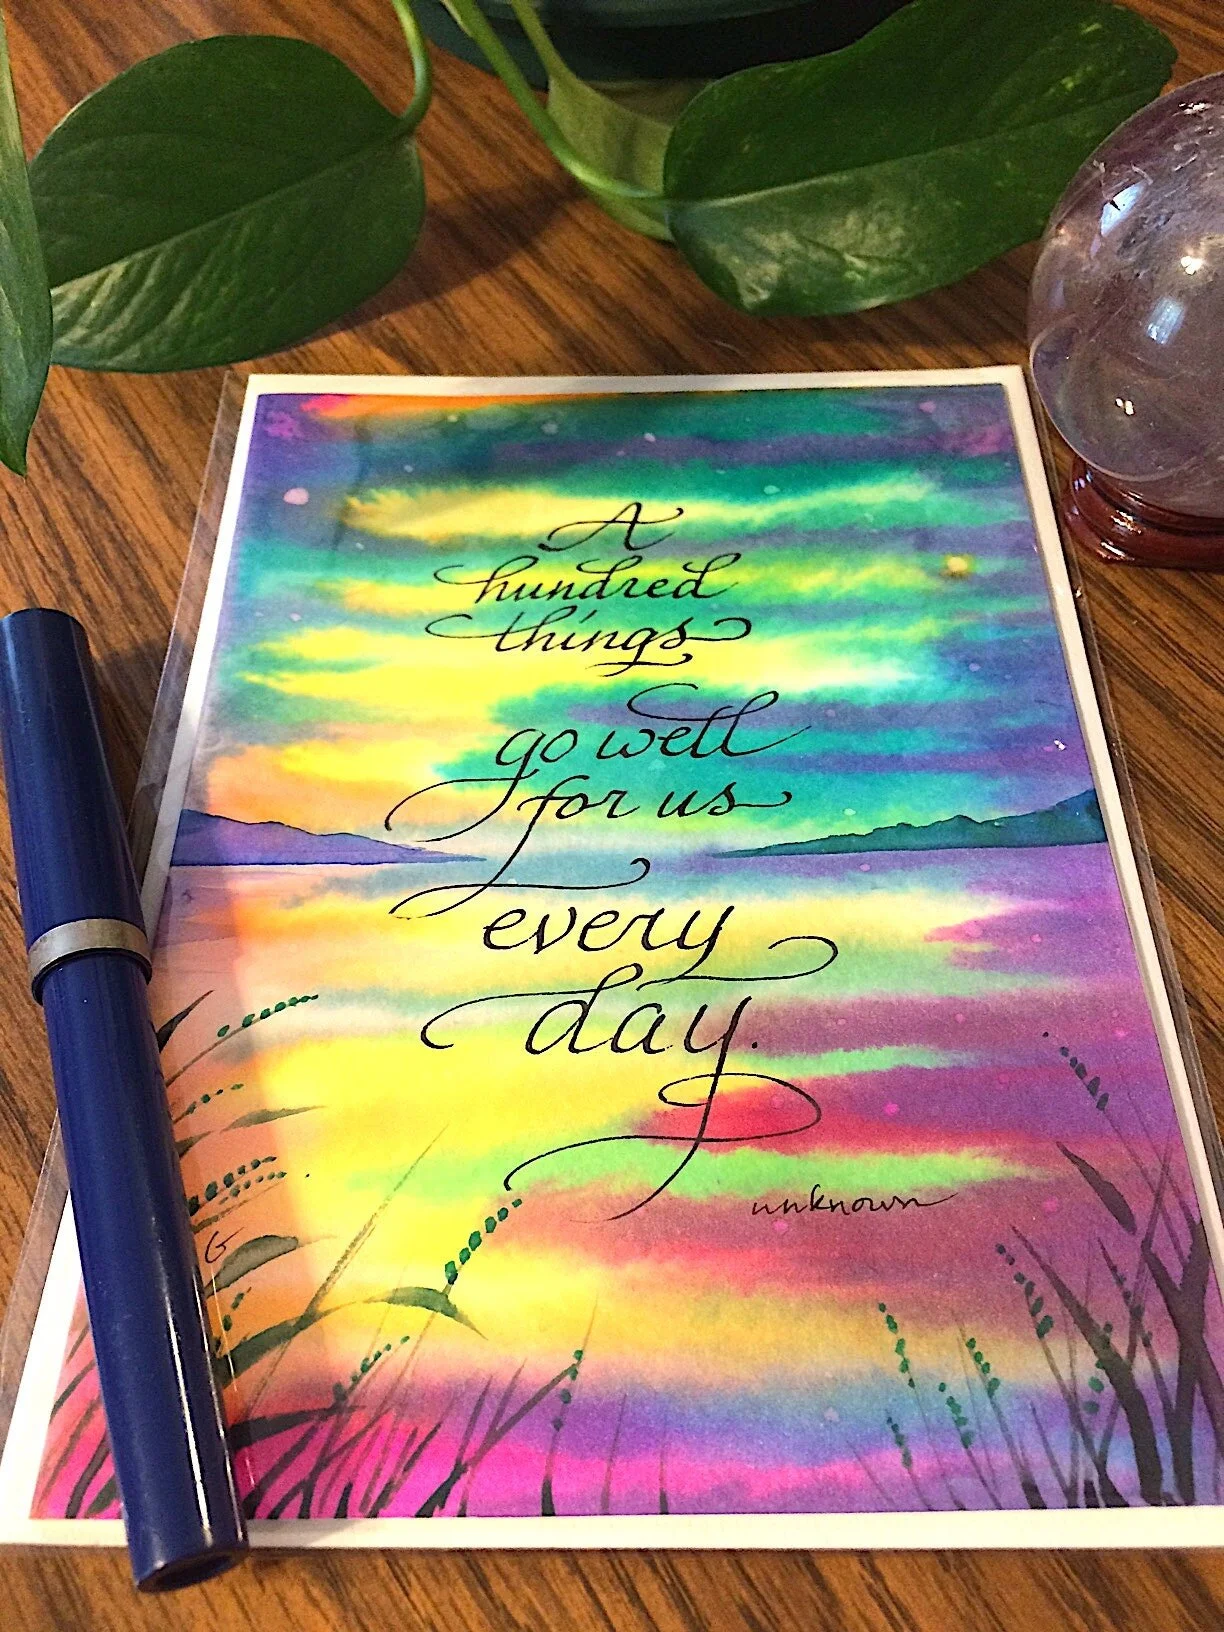 A
hundred
things
go well
for us
every
day.
unknown
G